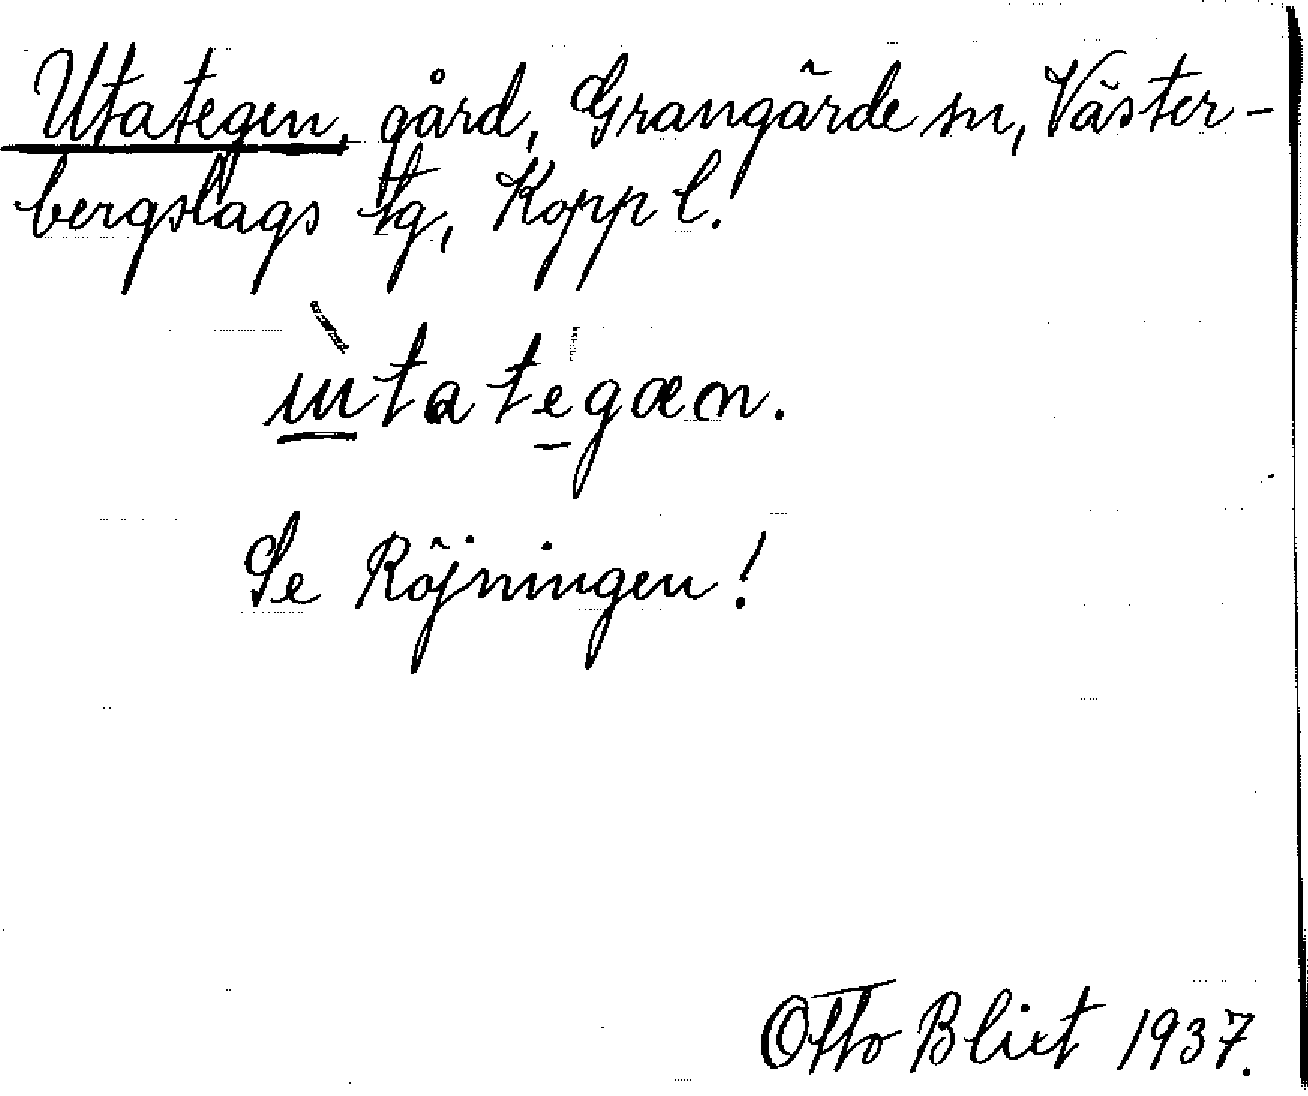 Utategen, gård, Grangärde sn, Väster-
bergslags tg, Kopp l.
ùtategæn.
Se Röjningen!
Otto Blixt 1937.